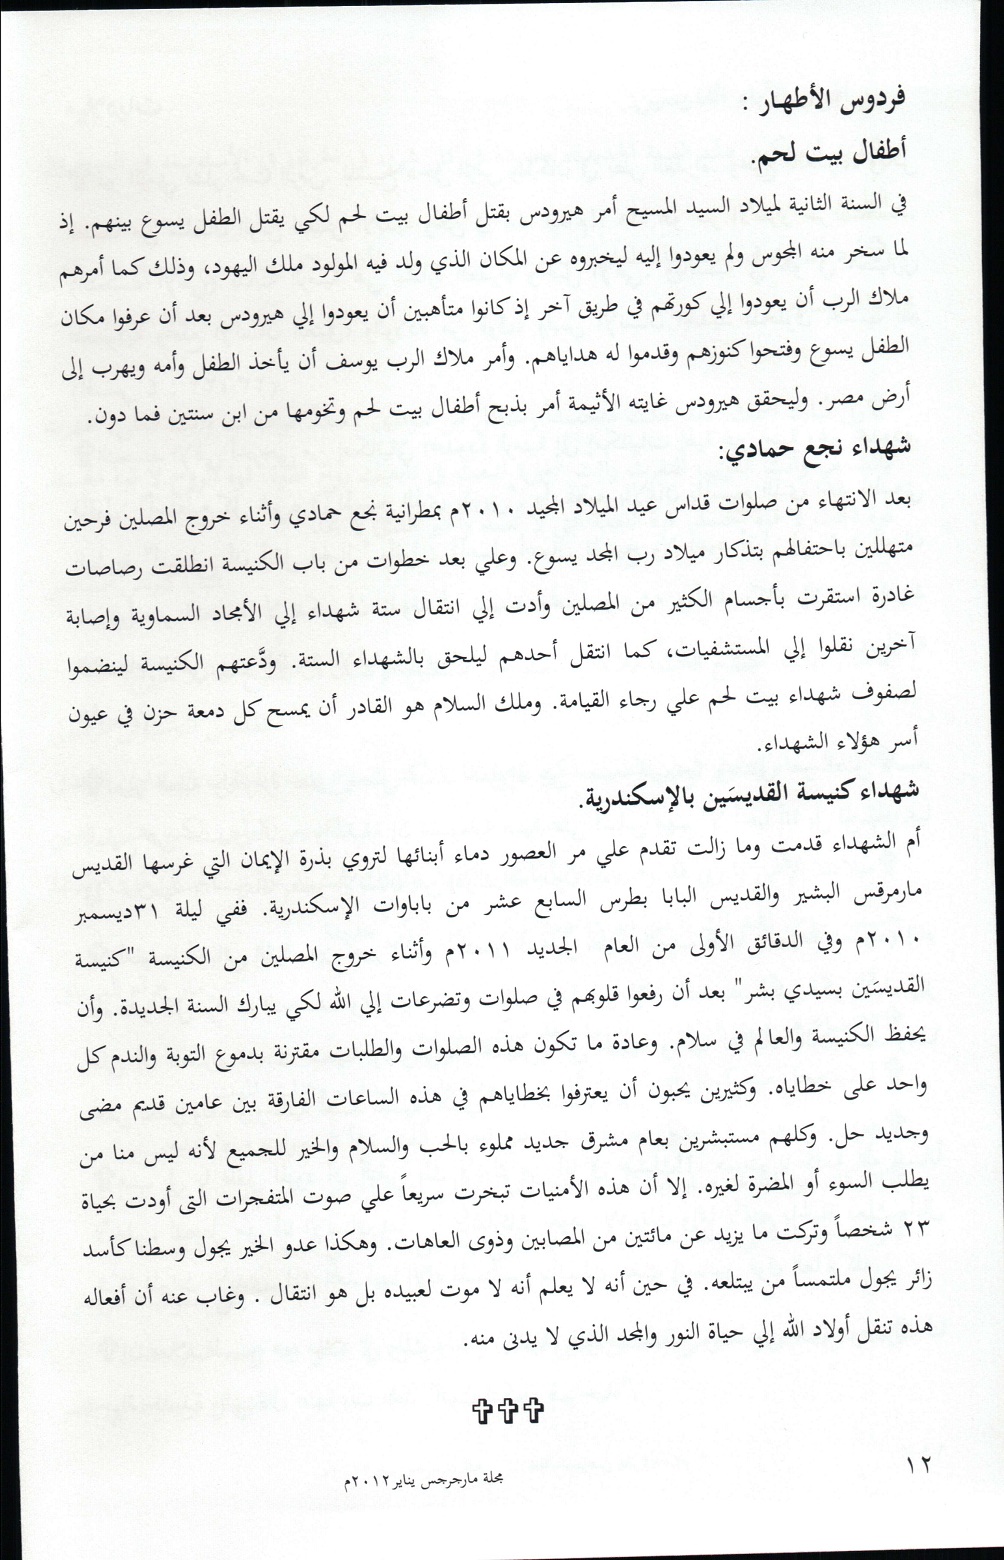 فردوس الأطهار :
أطفال بيت لحم.
في السنة الثانية لميلاد السيد المسيح أمر هيرودس بقتل أطفال بيت لحم لكي يقتل الطفل يسوع بينهم. إذ
لما سخر منه المجوس ولم يعودوا إليه ليخبروه عن المكان الذي ولد فيه المولود ملك اليهود، وذلك كما أمرهم
ملاك الرب أن يعودوا إلي كورتهم في طريق آخر إذ كانوا متأهبين أن يعودوا إلي هيرودس بعد أن عرفوا مكان
الطفل يسوع وفتحوا كنوزهم وقدموا له هداياهم. وأمر ملاك الرب يوسف أن يأخذ الطفل وأمه ويهرب إلى
أرض مصر. وليحقق هيرودس غايته الأثيمة أمر بذبح أطفال بيت لحم وتخومها من ابن سنتين فما دون.
شهداء نجع حمادي:
بعد الانتهاء من صلوات قداس عيد الميلاد المجيد ٢٠١٠م بمطرانية نجع حمادي وأثناء خروج المصلين فرحين
متهللين باحتفالهم بتذكار ميلاد رب المجد يسوع. وعلي بعد خطوات من باب الكنيسة انطلقت رصاصات
غادرة استقرت بأجسام الكثير من المصلين وأدت إلي انتقال ستة شهداء إلي الأمجاد السماوية وإصابة
آخرين نقلوا إلي المستشفيات، كما انتقل أحدهم ليلحق بالشهداء الستة. ودَّعتهم الكنيسة لينضموا
لصفوف شهداء بيت لحم علي رجاء القيامة. وملك السلام هو القادر أن يمسح كل دمعة حزن في عيون
أسر هؤلاء الشهداء.
شهداء كنيسة القديسَين بالإسكندرية.
أم الشهداء قدمت وما زالت تقدم علي مر العصور دماء أبنائها لتروي بذرة الإيمان التي غرسها القديس
مارمرقس البشير والقديس البابا بطرس السابع عشر من باباوات الإسكندرية. ففي ليلة ٣١ديسمبر
٢٠١٠م وفي الدقائق الأولى من العام الجديد ٢٠١١م وأثناء خروج المصلين من الكنيسة "كنيسة
القديسَين بسيدي بشر" بعد أن رفعوا قلوبهم في صلوات وتضرعات إلي الله لكي يبارك السنة الجديدة. وأن
يحفظ الكنيسة والعالم في سلام. وعادة ما تكون هذه الصلوات والطلبات مقترنة بدموع التوبة والندم كل
واحد على خطاياه. وكثيرين يحبون أن يعترفوا بخطاياهم في هذه الساعات الفارقة بين عامين قديم مضى
وجديد حل. وكلهم مستبشرين بعام مشرق جديد مملوء بالحب والسلام والخير للجميع لأنه ليس منا من
يطلب السوء أو المضرة لغيره. إلا أن هذه الأمنيات تبخرت سريعاً علي صوت المتفجرات التى أودت بحياة
٢٣ شخصاً وتركت ما يزيد عن مائتين من المصابين وذوى العاهات. وهكذا عدو الخير يجول وسطنا كأسد
زائر يجول ملتمساً من يبتلعه. في حين أنه لا يعلم أنه لا موت لعبيده بل هو انتقال . وغاب عنه أن أفعاله
هذه تنقل أولاد الله إلي حياة النور والمجد الذي لا يدنى منه.
١٢
مجلة مارجرجس يناير٢٠١٢م